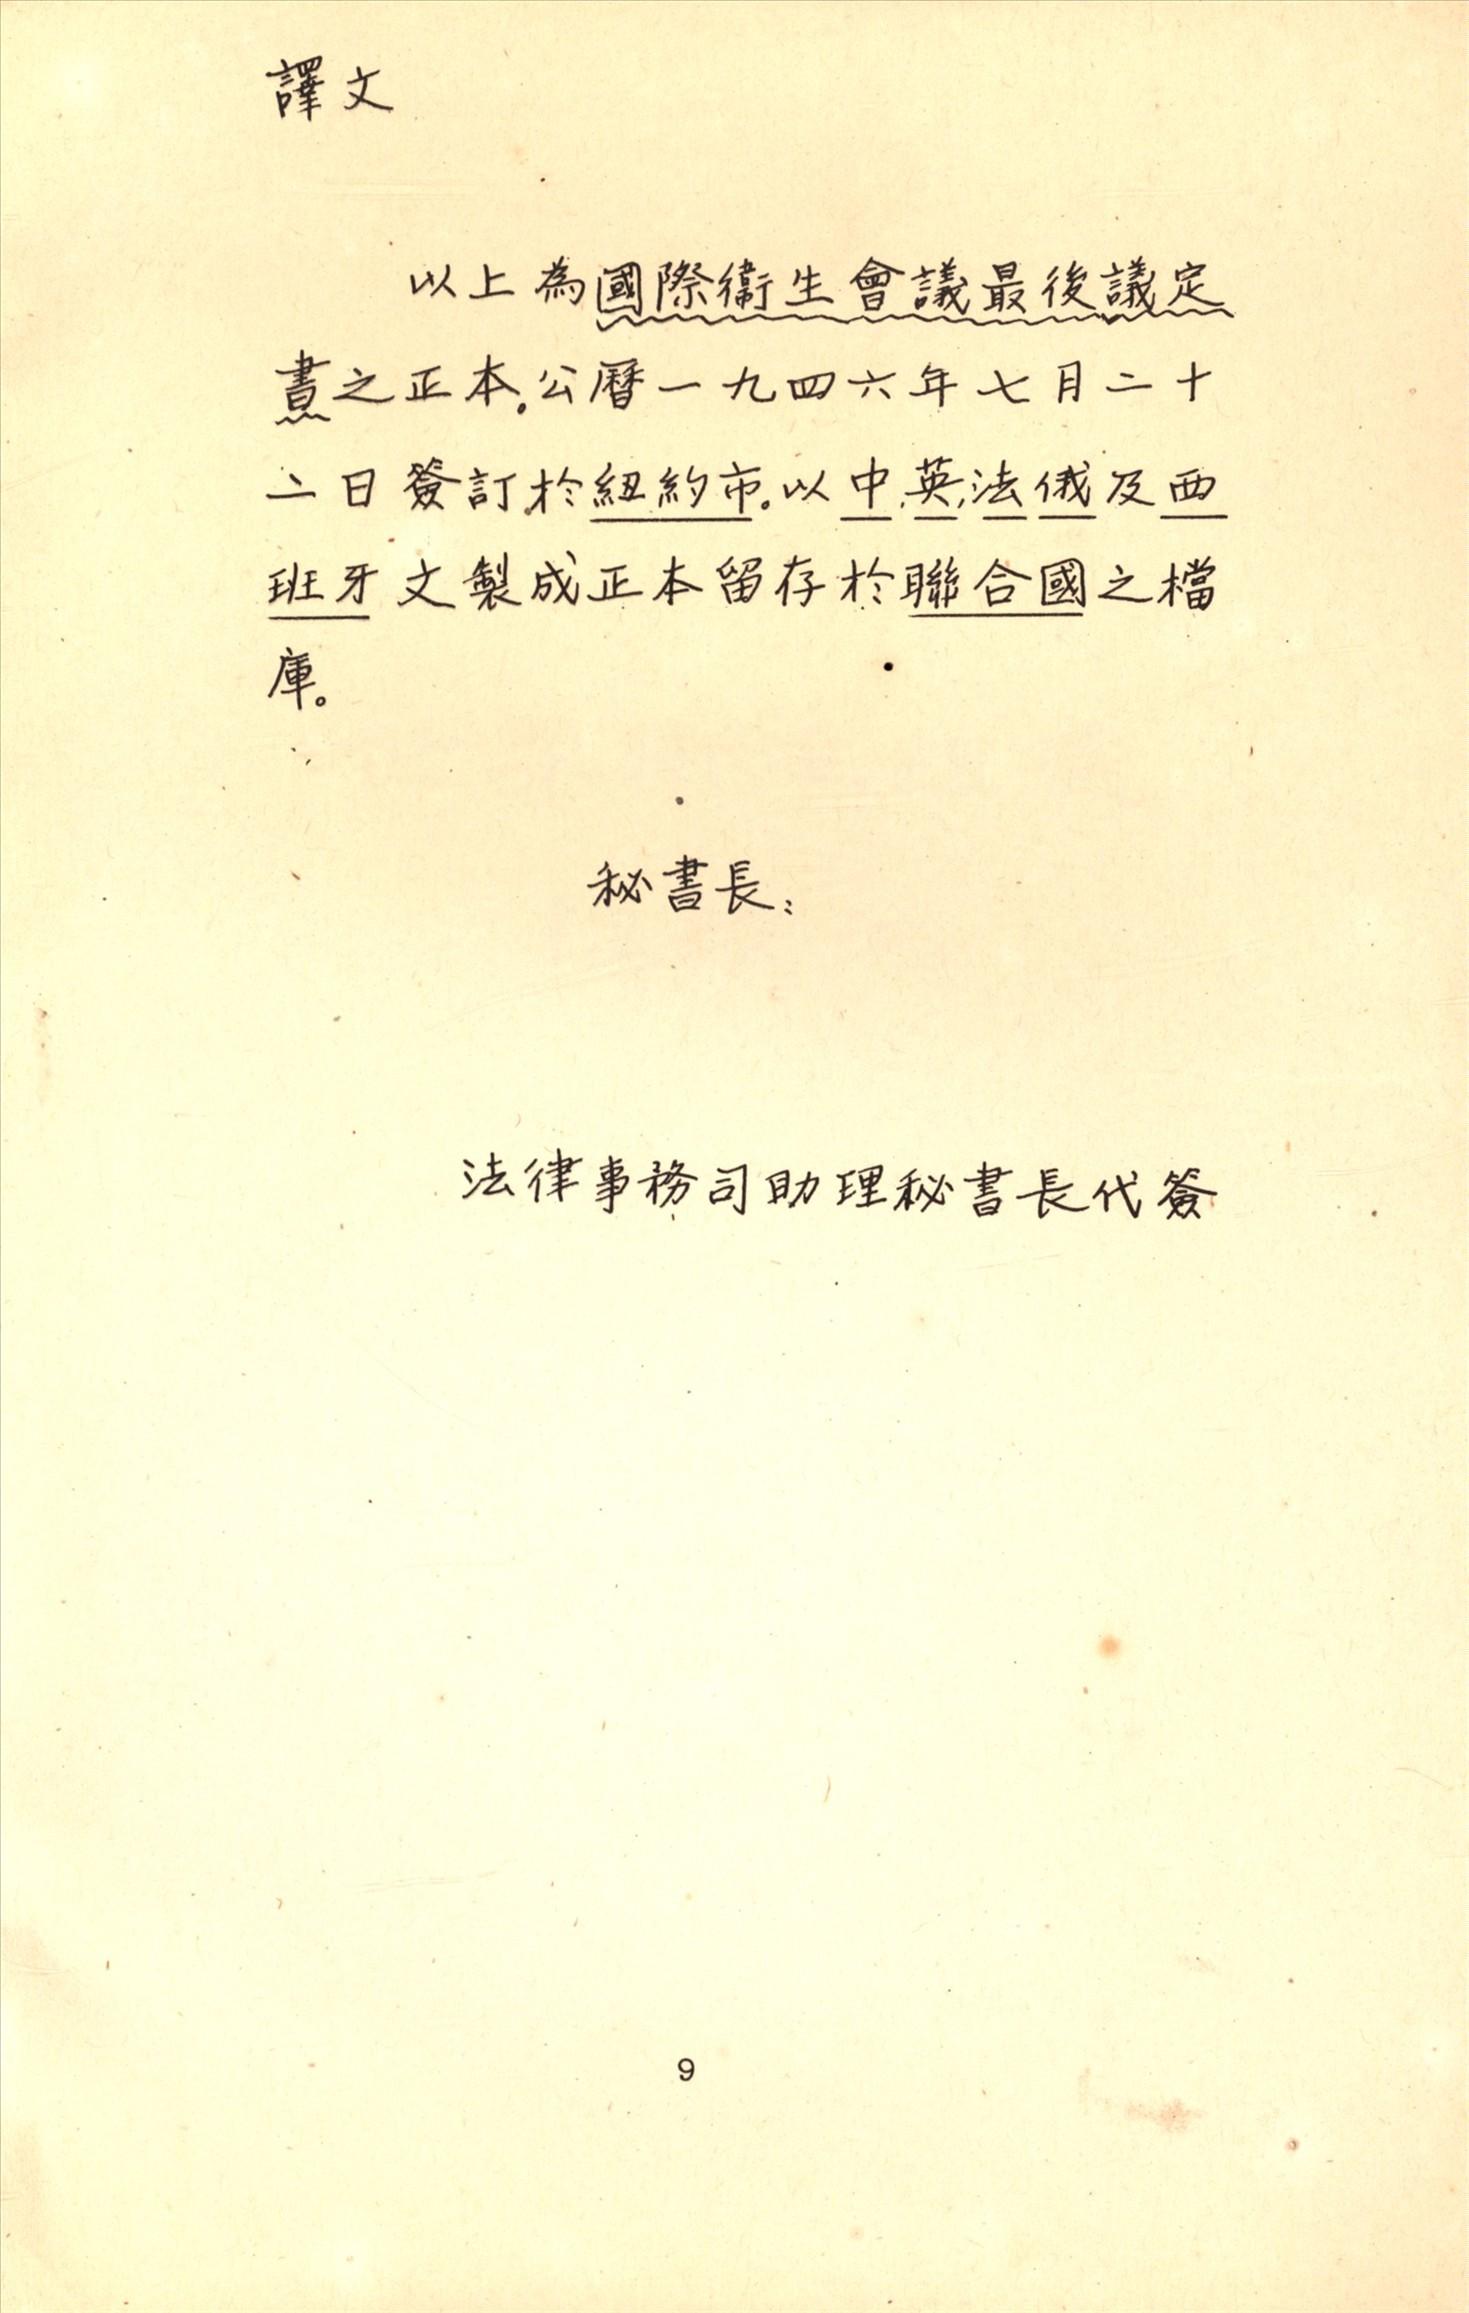 譯文
以上為國際衞生會議最後議定
書之正本。公曆一九四六年七月二十
二日簽訂於紐約市。以中、英、法俄及西
班牙文製成正本留存於聯合國之檔
庫。
秘書長：
法律事務司助理秘書長代簽
9